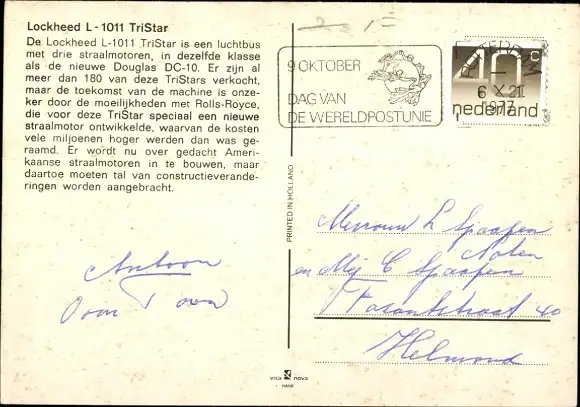 Lockheed L-1011 TriStar
De Lockheed L-1011 TriStar is een luchtbus
met drie straalmotoren, in dezelfde klasse
als de nieuwe Douglas DC-10. Er zijn al
meer dan 180 van deze TriStars verkocht,
maar de toekomst van de machine is onze-
ker door de moeilijkheden met Rolls-Royce,
die voor deze TriStar speciaal een nieuwe
straalmotor ontwikkelde, waarvan de kosten
vele miljoenen hoger werden dan was ge-
raamd. Er wordt nu over gedacht Ameri-
kaanse straalmotoren in te bouwen, maar
daartoe moeten tal van constructieverande-
ringen worden aangebracht.
Antoon
Oom
PRINTED IN HOLLAND
vita nova
HANK
9 OKTOBER
DAG VAN
DE WERELDPOSTUNIE
40c
6 X 21
1977
nederland
Mevrouw L Spaapen
en Mej C Spaapen
40
Helmond